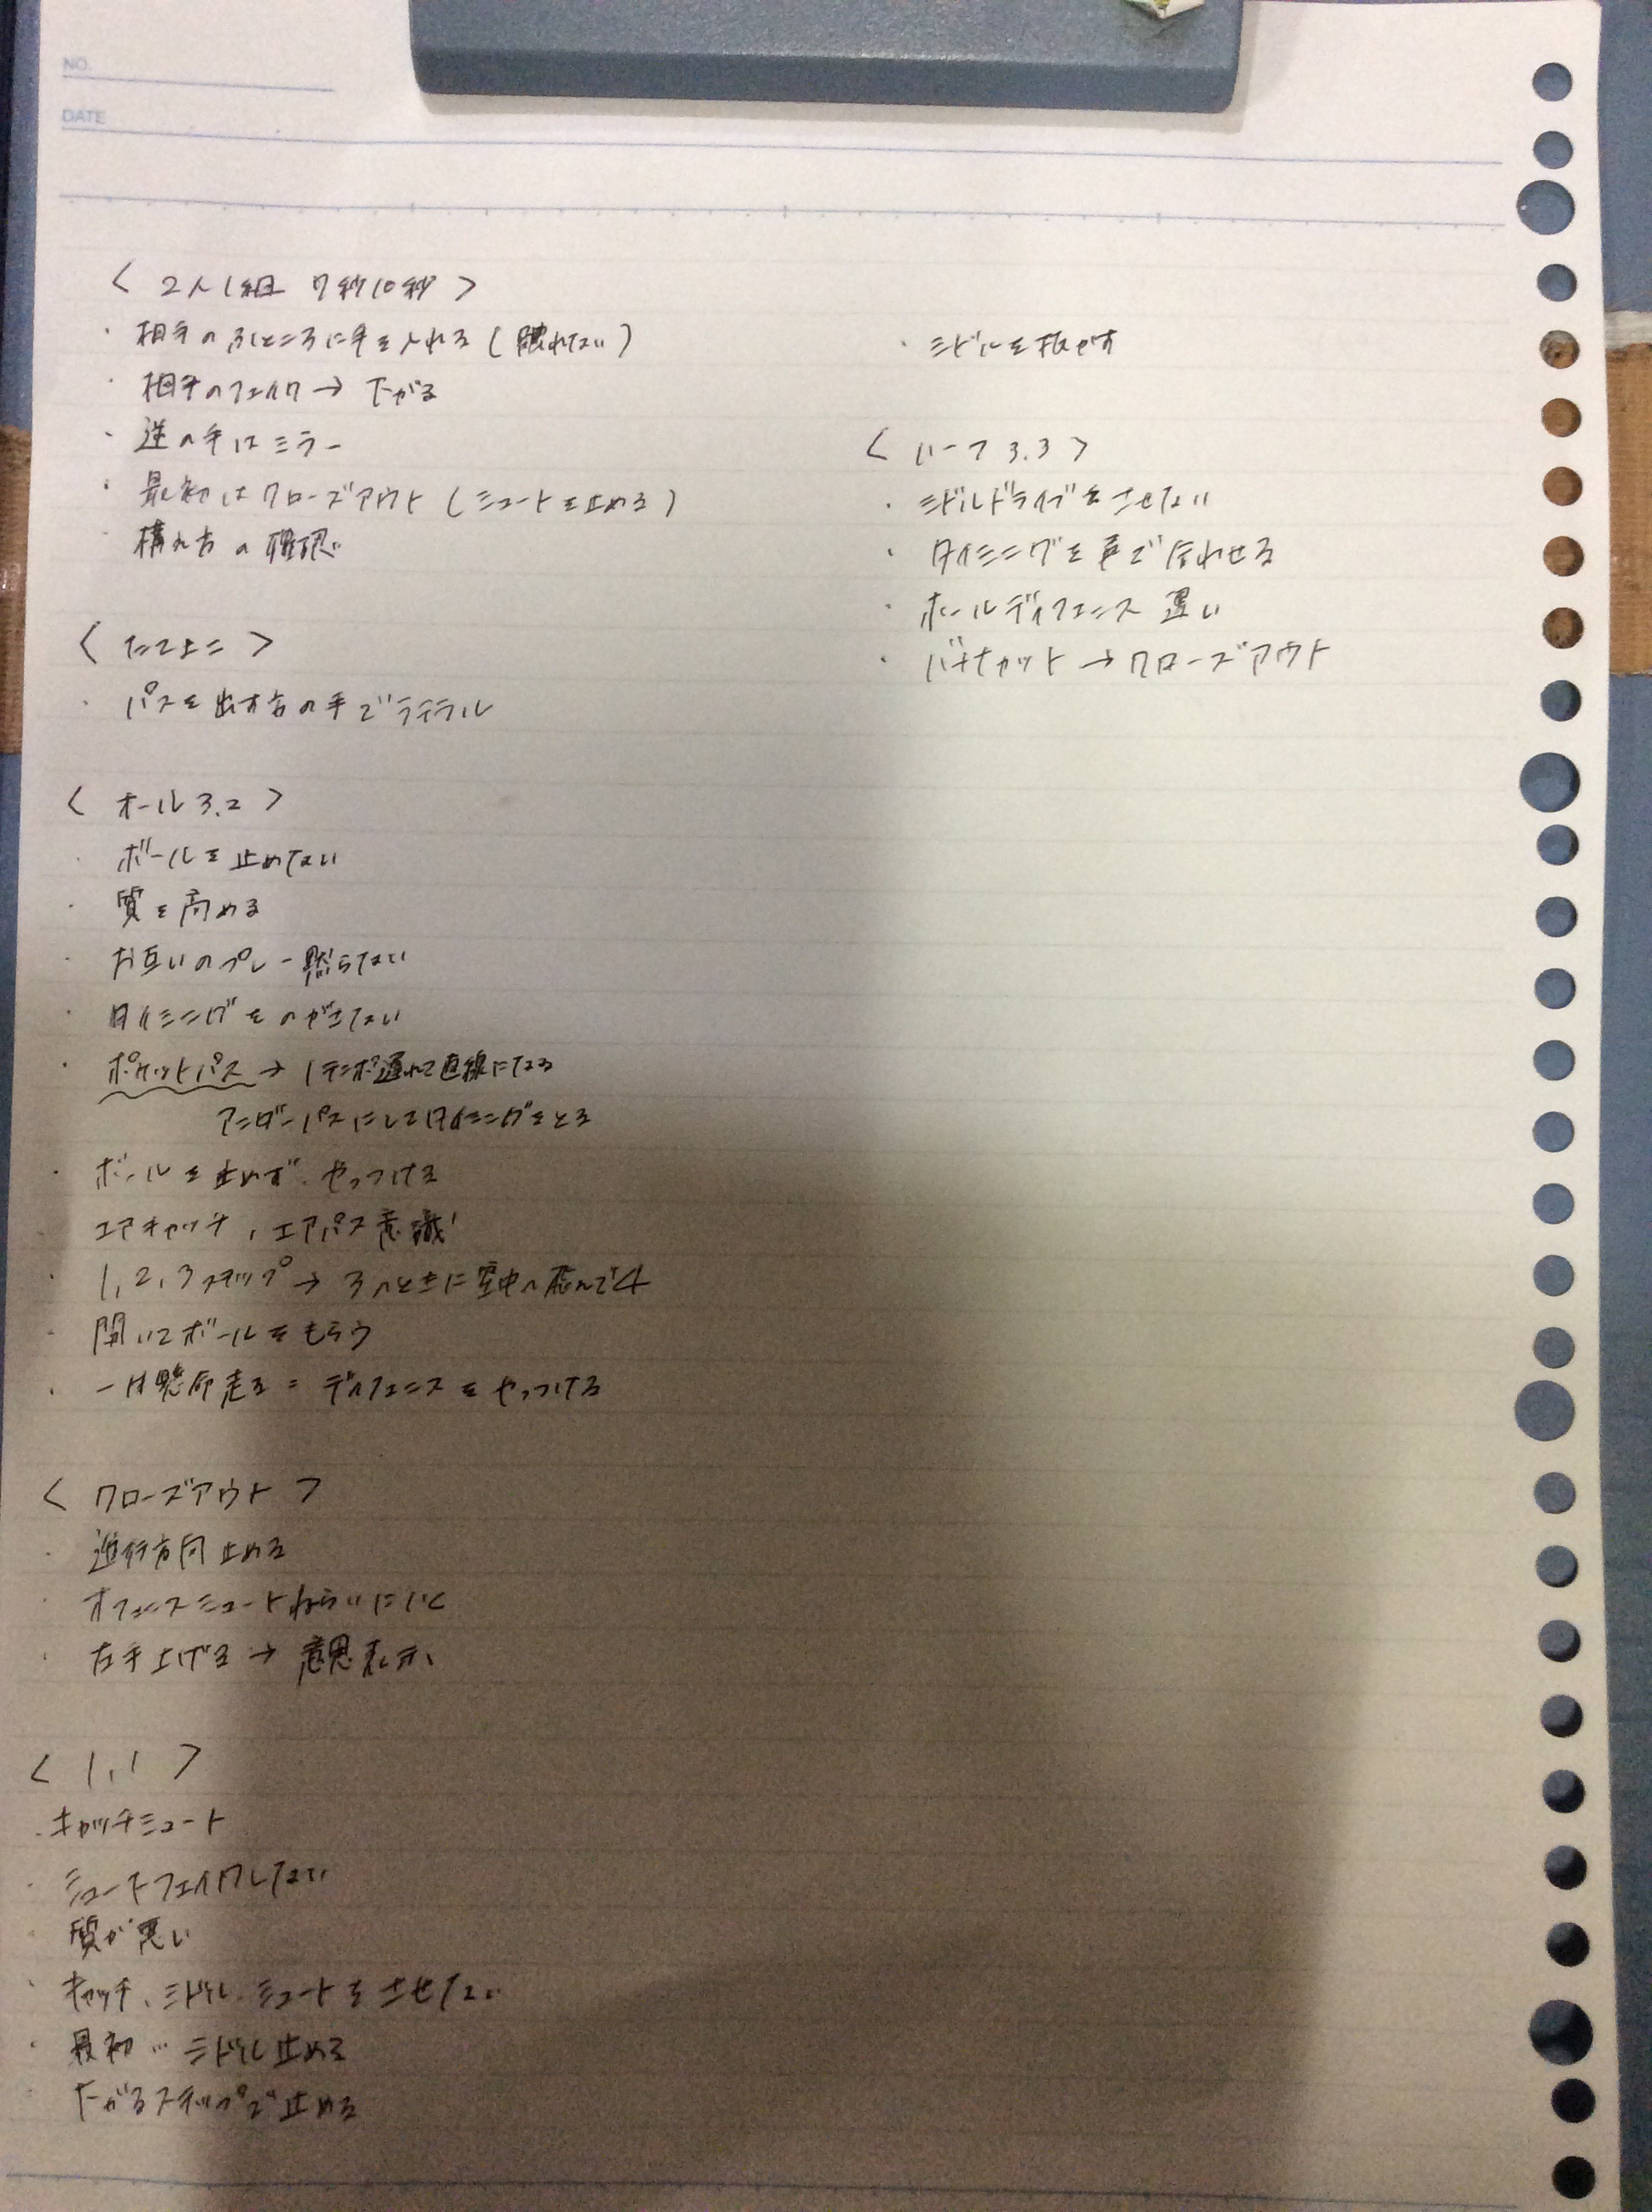 NO.
DATE
< 2人1組 7秒10秒 >
・相手のふところに手を入れる(離れない)
・相手のフェイク→下がる
・逆の手はミラー
・最初はクローズアウト(シュートを止める)
・構え方の確認
< たてよこ >
・パスを出す方の手でラテラル
< オール3.2 >
・ボールを止めない
・質を高める
・お互いのプレー黙らない
・タイミングをのがさない
・ポケットパス→1テンポ遅れて直線になる
アンダーパスにしてタイミングをとる
・ボールを止めず、やっつける
・エアキャッチ、エアパス意識
・1,2,3ステップ→3へときに空中へ飛んで4
・開いてボールをもらう
・一生懸命走る=ディフェンスをやっつける
< クローズアウト >
・進行方向止める
・オフェンスシュートねらいにいく
・左手上げる→意思表示
< 1,1 >
・キャッチシュート
・シュートフェイクしない
・質が悪い
・キャッチ、ミドル、シュートをさせない
・最初…ミドル止める
・下がるステップで止める
・ミドルを抜かす
< ハーフ3.3 >
・ミドルドライブをさせない
・タイミングを声で合わせる
・ボールディフェンス 遅い
・バチカット→クローズアウト